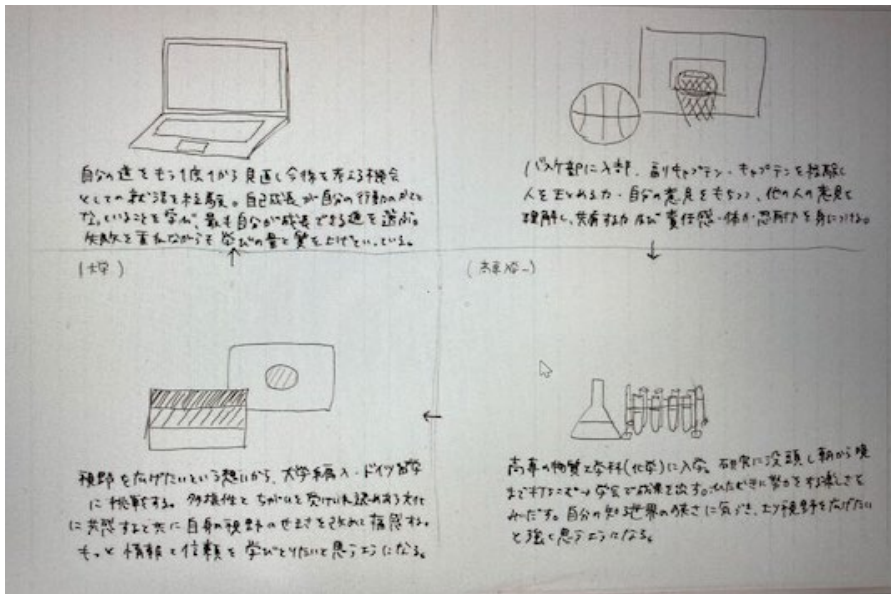 自分の道をもう1度1から見直し今後を考える機会
としての就活を経験。自己成長が自分の行動のかてと
なっていることを学び、最も自分が成長できる道を選ぶ。
失敗を重ねながらも学びの量と質を上げていっている。
バスケ部に入部、副キャプテン・キャプテンを経験し
人をまとめる力・自分の意見をもちつつ、他の人の意見を
理解し、共有する力及び責任感・体力・忍耐力を身につける。
(大学)
(高専入学~)
視野を広げたいという想いから、大学編入・ドイツ留学
に挑戦する。多様性とちがいを受け入れ認めあう文化
に共感すると共に自身の視野のせまさを改めて痛感する。
もっと情報と信頼を学びとりたいと思うようになる。
高専の物質工学科(化学)に入学。研究に没頭し朝から晩
まで打ちこむ→学会で成果を出す。ひたむきに努力をする楽しさを
みいだす。自分の知る世界の狭さに気づき、より視野を広げたい
と強く思うようになる。